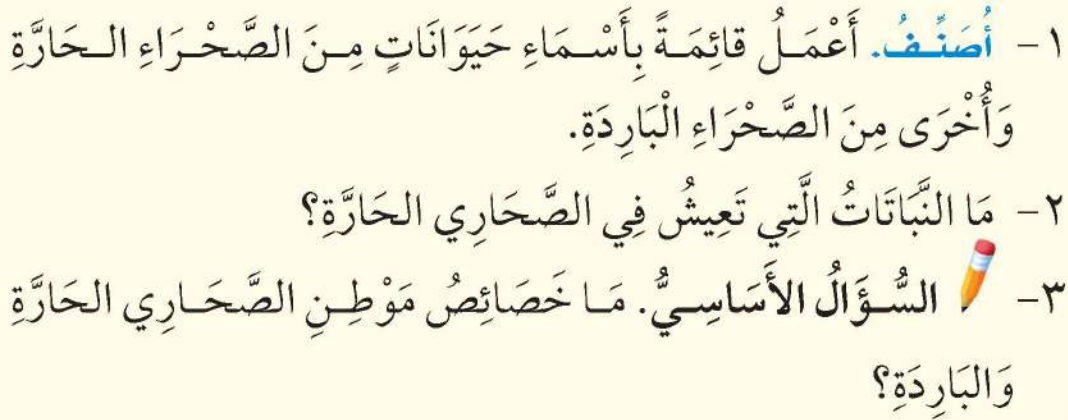 ١- أُصَنِّفُ. أَعْمَلُ قائِمَةً بِأَسْمَاءِ حَيَوَانَاتٍ مِنَ الصَّحْرَاءِ الحَارَّةِ
وَأُخْرَى مِنَ الصَّحْرَاءِ الْبَارِدَةِ.
٢- مَا النَّبَاتَاتُ الَّتِي تَعِيشُ فِي الصَّحَارِي الحَارَّةِ؟
٣- السُّؤَالُ الأَسَاسِيُّ. مَا خَصَائِصُ مَوْطِنِ الصَّحَارِي الحَارَّةِ
وَالبَارِدَةِ؟